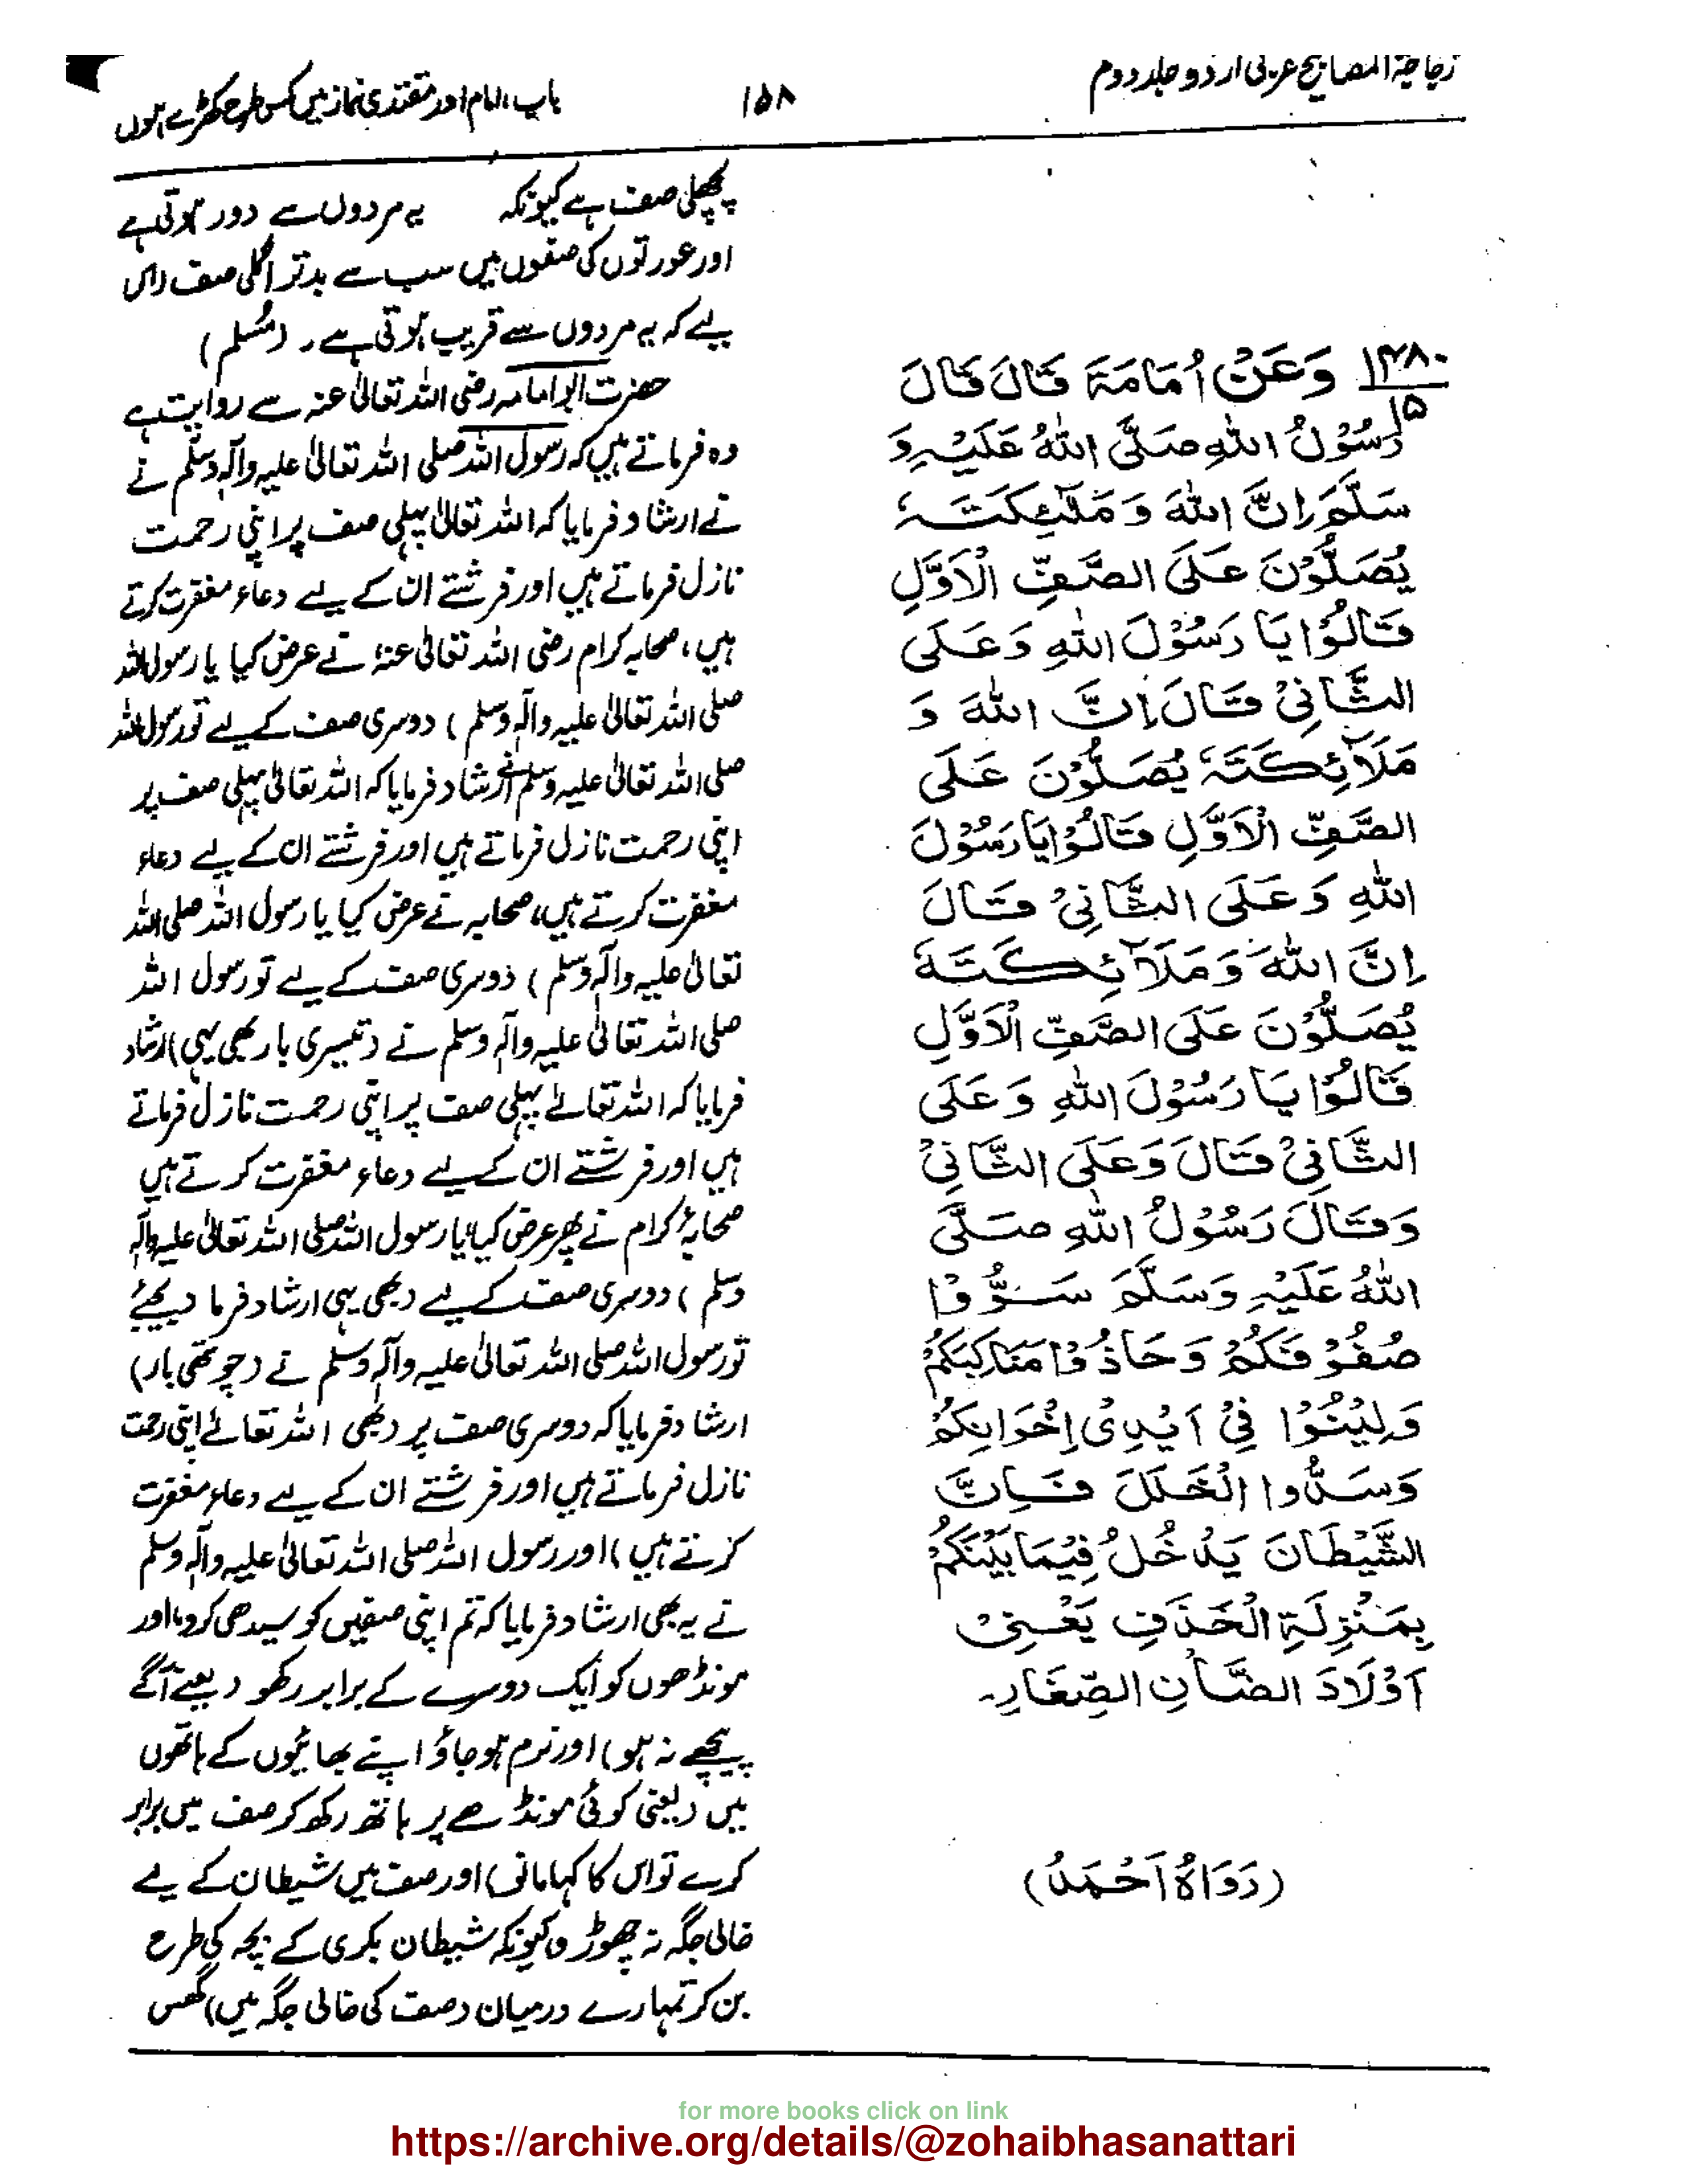 زجاجۃ المصابیح عربی اردو جلد دوم
۱۵۸
باب، امام اور مقتدی نماز میں کس طرح کھڑے ہوں
۱۴۸۰
۱۵
وَعَنْ اُمَامَةَ قَالَ قَالَ
رَسُوْلُ اللّٰهِ صَلَّى اللّٰهُ عَلَيْهِ وَ
سَلَّمَ اِنَّ اللّٰهَ وَ مَلٰٓئِكَتَهٗ
يُصَلُّوْنَ عَلَى الصَّفِّ الْاَوَّلِ
قَالُوْا يَا رَسُوْلَ اللّٰهِ وَعَلَى
الثَّانِيْ قَالَ اِنَّ اللّٰهَ وَ
مَلَآئِكَتَهٗ يُصَلُّوْنَ عَلَى
الصَّفِّ الْاَوَّلِ قَالُوْا يَا رَسُوْلَ
اللّٰهِ وَعَلَى الثَّانِيْ قَالَ
اِنَّ اللّٰهَ وَمَلَآئِكَتَهٗ
يُصَلُّوْنَ عَلَى الصَّفِّ الْاَوَّلِ
قَالُوْا يَا رَسُوْلَ اللّٰهِ وَعَلَى
الثَّانِيْ قَالَ وَعَلَى الثَّانِيْ
وَقَالَ رَسُوْلُ اللّٰهِ صَلَّى
اللّٰهُ عَلَيْهِ وَسَلَّمَ سَوُّوْا
صُفُوْفَكُمْ وَحَاذُوْا مَنَاكِبَكُمْ
وَلِيْنُوْا فِيْ اَيْدِيْ اِخْوَانِكُمْ
وَسَدُّوا الْخَلَلَ فَاِنَّ
الشَّيْطَانَ يَدْخُلُ فِيْمَا بَيْنَكُمْ
بِمَنْزِلَةِ الْخَذَفِ يَعْنِيْ
اَوْلَادَ الضَّأْنِ الصِّغَارِ۔
(رَوَاهُ اَحْمَدُ)
پچھلی صف ہے کیونکہ یہ مردوں سے دور ہوتی ہے
اور عورتوں کی صفوں میں سب سے بدتر اگلی صف (اس
لیے کہ یہ مردوں سے قریب ہوتی ہے۔ (مسلم)
حضرت ابو امامہ رضی اللہ تعالیٰ عنہ سے روایت ہے
وہ فرماتے ہیں کہ رسول اللہ صلی اللہ تعالیٰ علیہ وآلہ وسلم نے
نے ارشاد فرمایا کہ اللہ تعالیٰ پہلی صف پر اپنی رحمت
نازل فرماتے ہیں اور فرشتے ان کے لیے دعاء مغفرت کرتے
ہیں، صحابہ کرام رضی اللہ تعالیٰ عنہٗ نے عرض کیا یا رسول اللہ
صلی اللہ تعالیٰ علیہ وآلہ وسلم) دوسری صف کے لیے تو رسول اللہ
صلی اللہ تعالیٰ علیہ وسلم نے ارشاد فرمایا کہ اللہ تعالیٰ پہلی صف پر
اپنی رحمت نازل فرماتے ہیں اور فرشتے ان کے لیے دعاء
مغفرت کرتے ہیں، صحابہ نے عرض کیا یا رسول اللہ صلی اللہ
تعالیٰ علیہ وآلہ وسلم) دوسری صف کے لیے تو رسول اللہ
صلی اللہ تعالیٰ علیہ وآلہ وسلم نے (تیسری بار بھی یہی) ارشاد
فرمایا کہ اللہ تعالےٰ پہلی صف پر اپنی رحمت نازل فرماتے
ہیں اور فرشتے ان کے لیے دعاء مغفرت کرتے ہیں
صحابہؓ کرام نے پھر عرض کیا یا رسول اللہ صلی اللہ تعالیٰ علیہ وآلہ
وسلم) دوسری صف کے لیے (بھی یہی ارشاد فرما دیجئے
تو رسول اللہ صلی اللہ تعالیٰ علیہ وآلہ وسلم نے (چوتھی بار)
ارشاد فرمایا کہ دوسری صف پر (بھی اللہ تعالےٰ اپنی رحمت
نازل فرماتے ہیں اور فرشتے ان کے لیے دعاء مغفرت
کرتے ہیں) اور رسول اللہ صلی اللہ تعالیٰ علیہ وآلہ وسلم
نے یہ بھی ارشاد فرمایا کہ تم اپنی صفیں کو سیدھی کرو، اور
مونڈھوں کو ایک دوسرے کے برابر رکھو (یعنے آگے
پیچھے نہ ہو) اور نرم ہو جاؤ اپنے بھائیوں کے ہاتھوں
میں (یعنی کوئی مونڈھے پر ہاتھ رکھ کر صف میں برابر
کرے تو اس کا کہا مانو) اور صف میں شیطان کے لیے
خالی جگہ نہ چھوڑو کیونکہ شیطان بکری کے بچہ کی طرح
بن کر تمہارے درمیان (صف کی خالی جگہ میں) گھس
for more books click on link
https://archive.org/details/@zohaibhasanattari